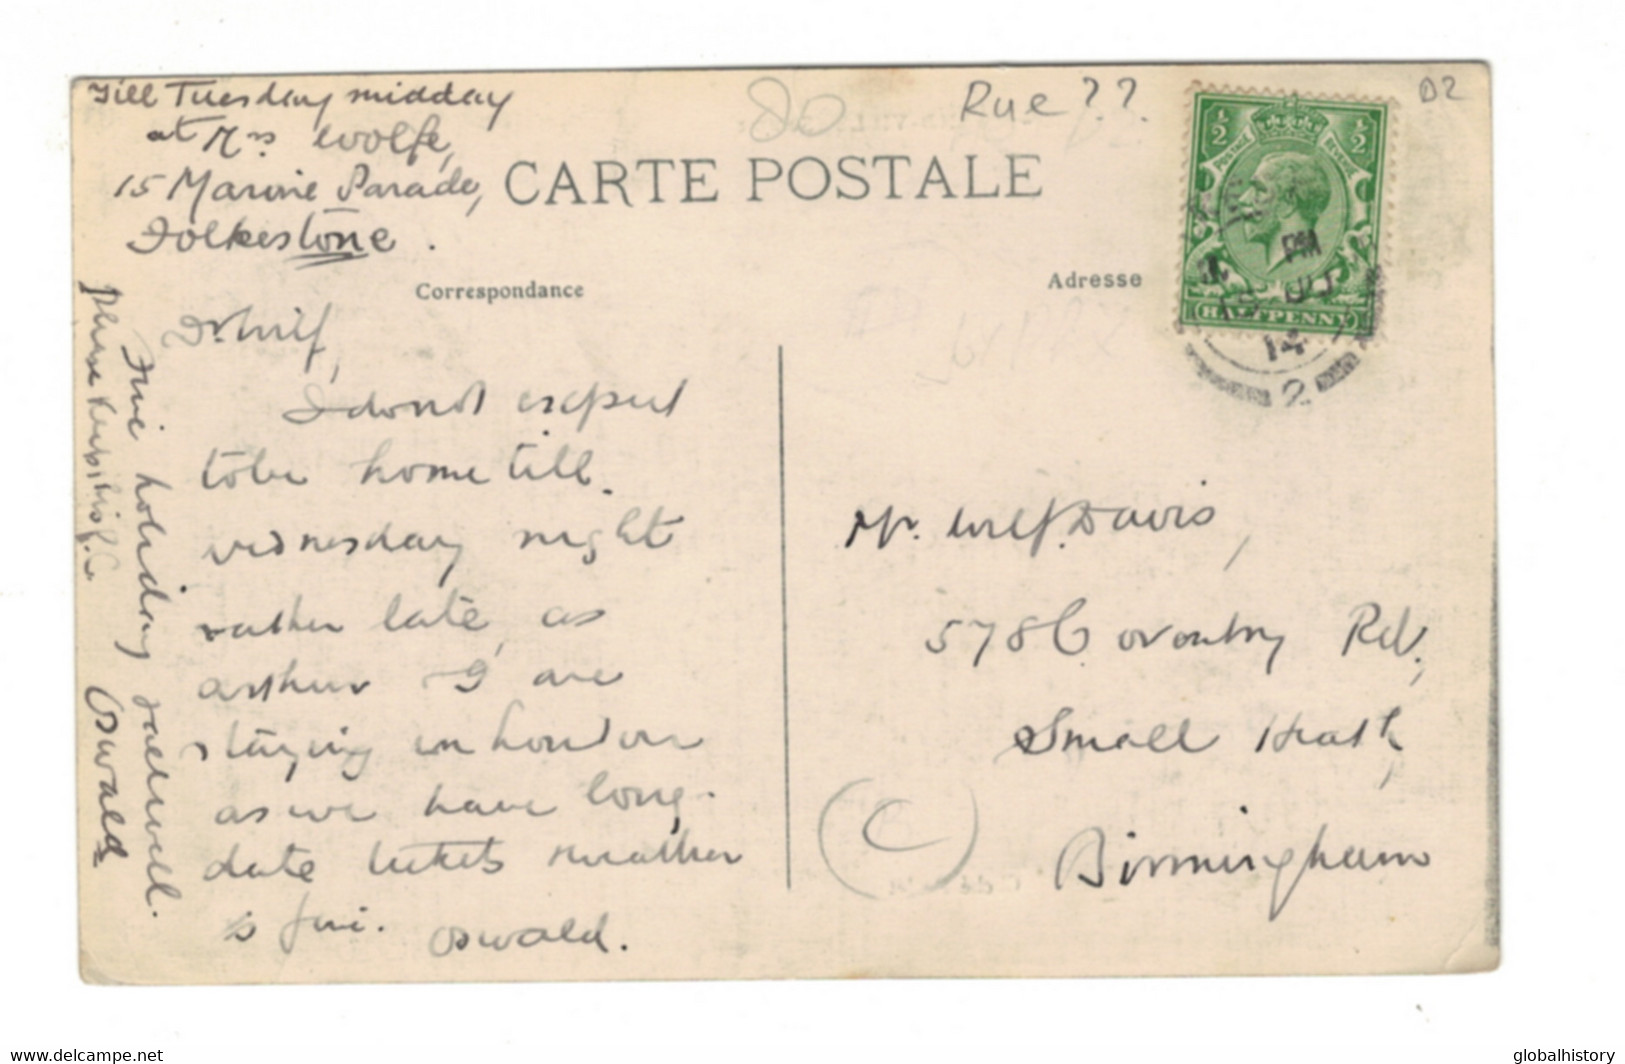 Till Tuesday midday
at Mrs Wolfe,
15 Marine Parade,
Folkestone.
80
Rue ??
02
CARTE POSTALE
Correspondance
Adresse
Dr Wilf,
I do not expect
to be home till
wednesday night
rather late, as
arthur & I are
staying in London
as we have long-
date tickets weather
is fine. Oswald.
Fine holiday farewell.
Oswald
please keep this P.C.
½ ½
POSTAGE REVENUE
HALFPENNY
PM
14
2
Mr. Wilf. Davis,
578 Coventry Rd,
Small Heath,
Birmingham
C
www.delcampe.net
globalhistory